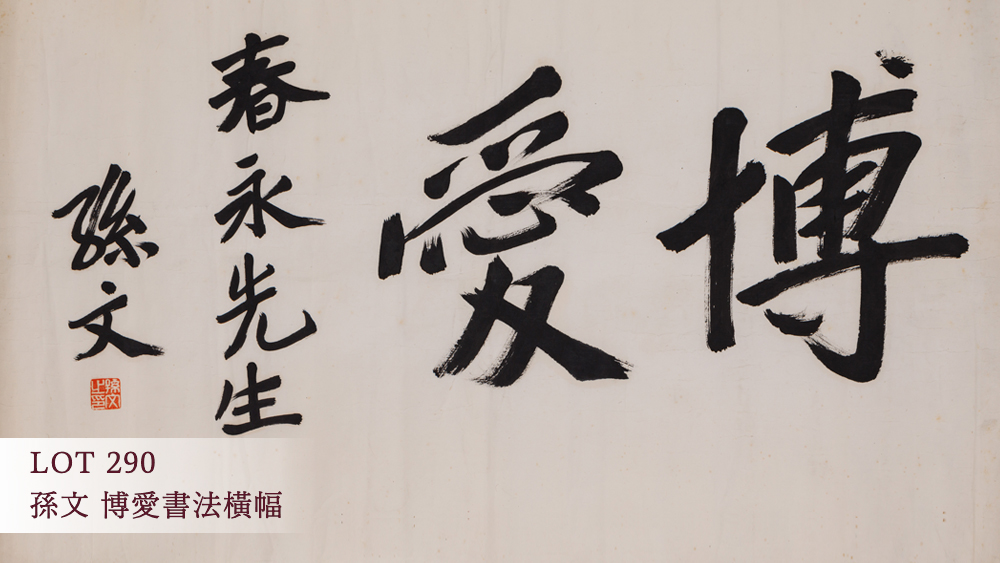 博愛
春永先生
孫文
孫文之印
LOT 290
孫文 博愛書法橫幅